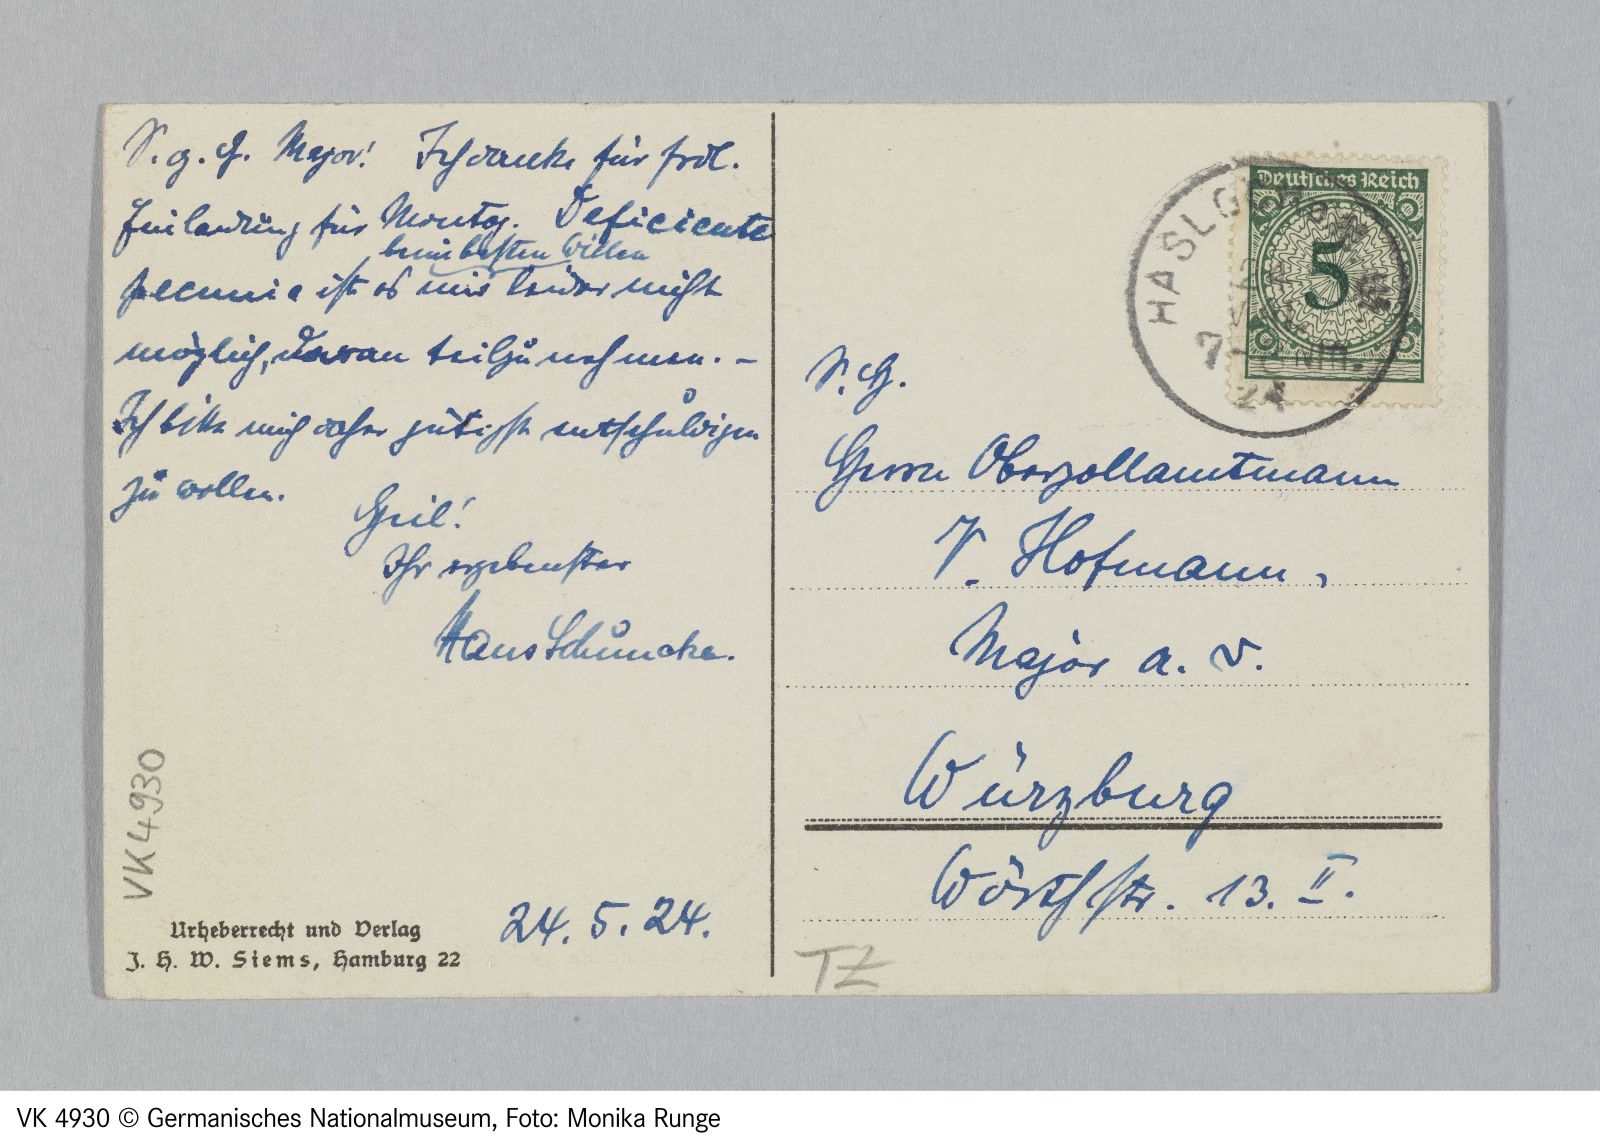 S. g. H. Major! Ich danke für frdl.
Einladung für Montag. Deficiente
beim besten Willen
pecunia ist es mir leider nicht
möglich, daran teilzunehmen. –
Ich bitte mich daher gütigst entschuldigen
zu wollen.
Heil!
Ihr ergebenster
Hans Schuncke.
VK 4930
Urheberrecht und Verlag
J. H. W. Siems, Hamburg 22
24. 5. 24.
Deutsches Reich
5
HASLG
7
24
S. H.
Herrn Oberzollamtmann
V. Hofmann,
Major a. D.
Würzburg
Wörthstr. 13. II.
TZ
VK 4930 © Germanisches Nationalmuseum, Foto: Monika Runge